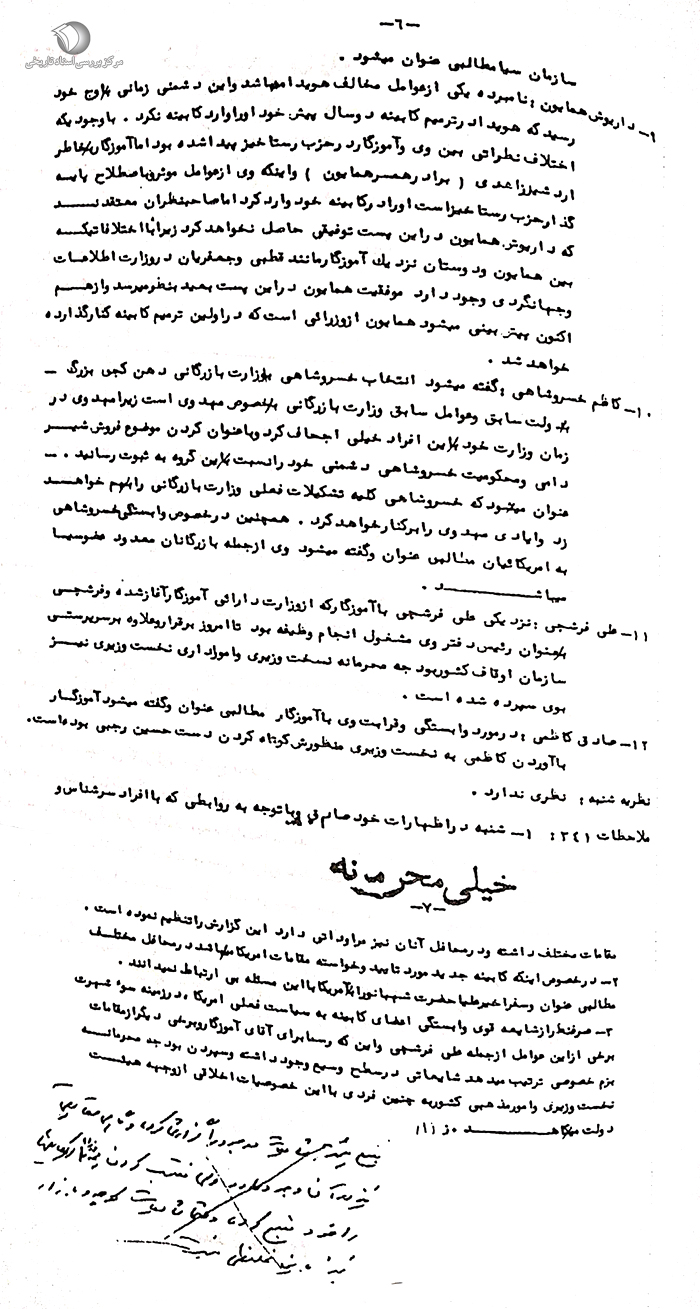 -٦-
مرکز بررسی اسناد تاریخی
سازمان سیا مطالبی عنوان میشود .
۹- داریوش همایون : نامبرده یکی از عوامل مخالف هویدا میباشد و این دشمنی زمانی به اوج خود
رسید که هویدا در ترمیم کابینه دو سال پیش خود او را وارد کابینه نکرد . با وجودیکه
اختلاف نظراتی بین وی و آموزگار در حزب رستاخیز پیدا شده بود اما آموزگار بخاطر
اردشیر زاهدی ( برادر همسر همایون ) و اینکه وی از عوامل موثر باصطلاح پایه
گذار حزب رستاخیز است او را در کابینه خود وارد کرد اما صاحبنظران معتقدند
که داریوش همایون در این پست توفیقی حاصل نخواهد کرد زیرا با اختلافاتیکه
بین همایون و دوستان نزدیك آموزگار مانند قطبی و جعفریان در وزارت اطلاعات
وجهانگردی وجود دارد موفقیت همایون در این پست بعید بنظر میرسد و از هم
اکنون پیش بینی میشود همایون از وزرائی است که در اولین ترمیم کابینه کنار گذارده
خواهد شد .
۱۰- کاظم خسروشاهی : گفته میشود انتخاب خسروشاهی بوزارت بازرگانی دهن کجی بزرگ -
بدولت سابق و عوامل سابق وزارت بازرگانی بخصوص مهدوی است زیرا مهدوی در
زمان وزارت خود باین افراد خیلی اجحاف کرد و با عنوان کردن موضوع فروش شیر
دامی و محکومیت خسروشاهی دشمنی خود را نسبت باین گروه به ثبوت رسانید . -
عنوان میشود که خسروشاهی کلیه تشکیلات فعلی وزارت بازرگانی را بهم خواهد
زد و ایادی مهدوی را برکنار خواهد کرد . همچنین در خصوص وابستگی خسروشاهی
به امریکائیان مطالبی عنوان و گفته میشود وی از جمله بازرگانان معدود عضو سیا
میباشد .
۱۱- علی فرشچی : نزدیکی علی فرشچی با آموزگار که از وزارت دارائی آموزگار آغاز شده و فرشچی
بعنوان رئیس دفتر وی مشغول انجام وظیفه بود تا امروز برقرار و علاوه بر سرپرستی
سازمان اوقاف کشور بودجه محرمانه نسخت وزیری و امور اداری نخست وزیری نیز
بوی سپرده شده است .
۱۲- صادق کاظمی : در مورد وابستگی و قرابت وی با آموزگار مطالبی عنوان و گفته میشود آموزگار
با آوردن کاظمی به نخست وزیری منظورش کوتاه کردن دست حسین رجبی بوده است .
نظریه شنبه : نظری ندارد .
ملاحظات ۲٤۱ : ۱- شنبه در اظهارات خود صادق و با توجه به روابطی که با افراد سرشناس و
خیلی محرمانه
-٧-
مقامات مختلف داشته و در محافل آنان نیز مراوداتی دارد این گزارش را تنظیم نموده است .
۲- در خصوص اینکه کابینه جدید مورد تایید و خواسته مقامات امریکا میباشد در محافل مختلف
مطالبی عنوان و سفر اخیر علیا حضرت شهبانو را به آمریکا با این مسئله بی ارتباط نمیدانند .
۳- صرفنظر از شایعه قوی وابستگی اعضای کابینه به سیاست فعلی امریکا ، در زمینه سوء شهرت
برخی از این عوامل از جمله علی فرشچی و این که رسما برای آقای آموزگار و برخی دیگر از مقامات
بزم خصوصی ترتیب میدهد شایعاتی در سطح وسیع وجود داشته و سپردن بودجه محرمانه
نخست وزیری و امور مذهبی کشور به چنین فردی با این خصوصیات اخلاقی از وجهه هیئت
دولت میکاهد